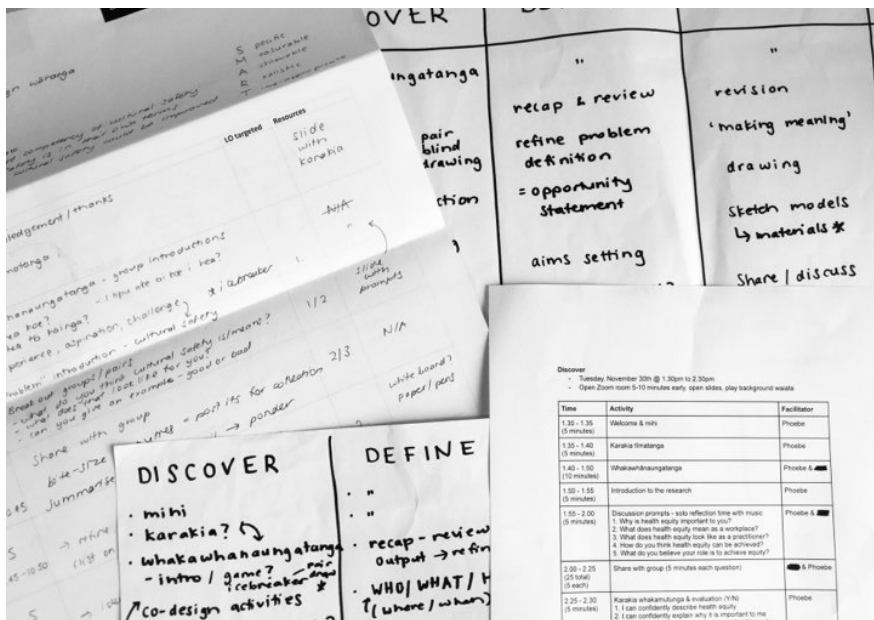 OVER
ngatanga
pair
blind
drawing
ction
"
recap & review
refine problem
definition
= opportunity
statement
aims setting
"
revision
'making meaning'
drawing
sketch models
↳ materials *
Share / discuss
S pecific
M easurable
A chievable
R ealistic
T
LO targeted Resources
slide
with
karakia
ledgement / thanks
N/A
"
hanaungatanga - group introductions
* icebreaker
1.
perience, aspiration, challenge
introduction - cultural safety
1/2
slide
with
prompts
Break out groups / pairs
- what do you think cultural safety is/means?
- what does that look like for you?
- can you give an example - good or bad
N/A
Share with group
post its for collection
2/3
white board?
paper / pens
bite-size
→ ponder
Summarise
→ refine
DISCOVER
• mihi
• karakia?
• whakawhanaungatanga
- intro / game?
icebreaker
pair
draw
*
co-design activities
DEFINE
• "
• "
• recap - review
output → refin
• WHO / WHAT / H
(where / when)
Discover
- Tuesday, November 30th @ 1.30pm to 2.30pm
- Open Zoom room 5-10 minutes early, open slides, play background waiata
Time Activity Facilitator
1.30 - 1.35 Welcome & mihi Phoebe
(5 minutes)
1.35 - 1.40 Karakia tīmatanga Phoebe
(5 minutes)
1.40 - 1.50 Whakawhānaungatanga Phoebe &
(10 minutes)
1.50 - 1.55 Introduction to the research Phoebe
(5 minutes)
1.55 - 2.00 Discussion prompts - solo reflection time with music Phoebe &
(5 minutes) 1. Why is health equity important to you?
2. What does health equity mean as a workplace?
3. What does health equity look like as a practitioner?
4. How do you think health equity can be achieved?
5. What do you believe your role is to achieve equity?
2.00 - 2.25 Share with group (5 minutes each question) & Phoebe
(25 total)
(5 each)
2.25 - 2.30 Karakia whakamutunga & evaluation (Y/N) Phoebe
(5 minutes) 1. I can confidently describe health equity
2. I can confidently explain why it is important to me